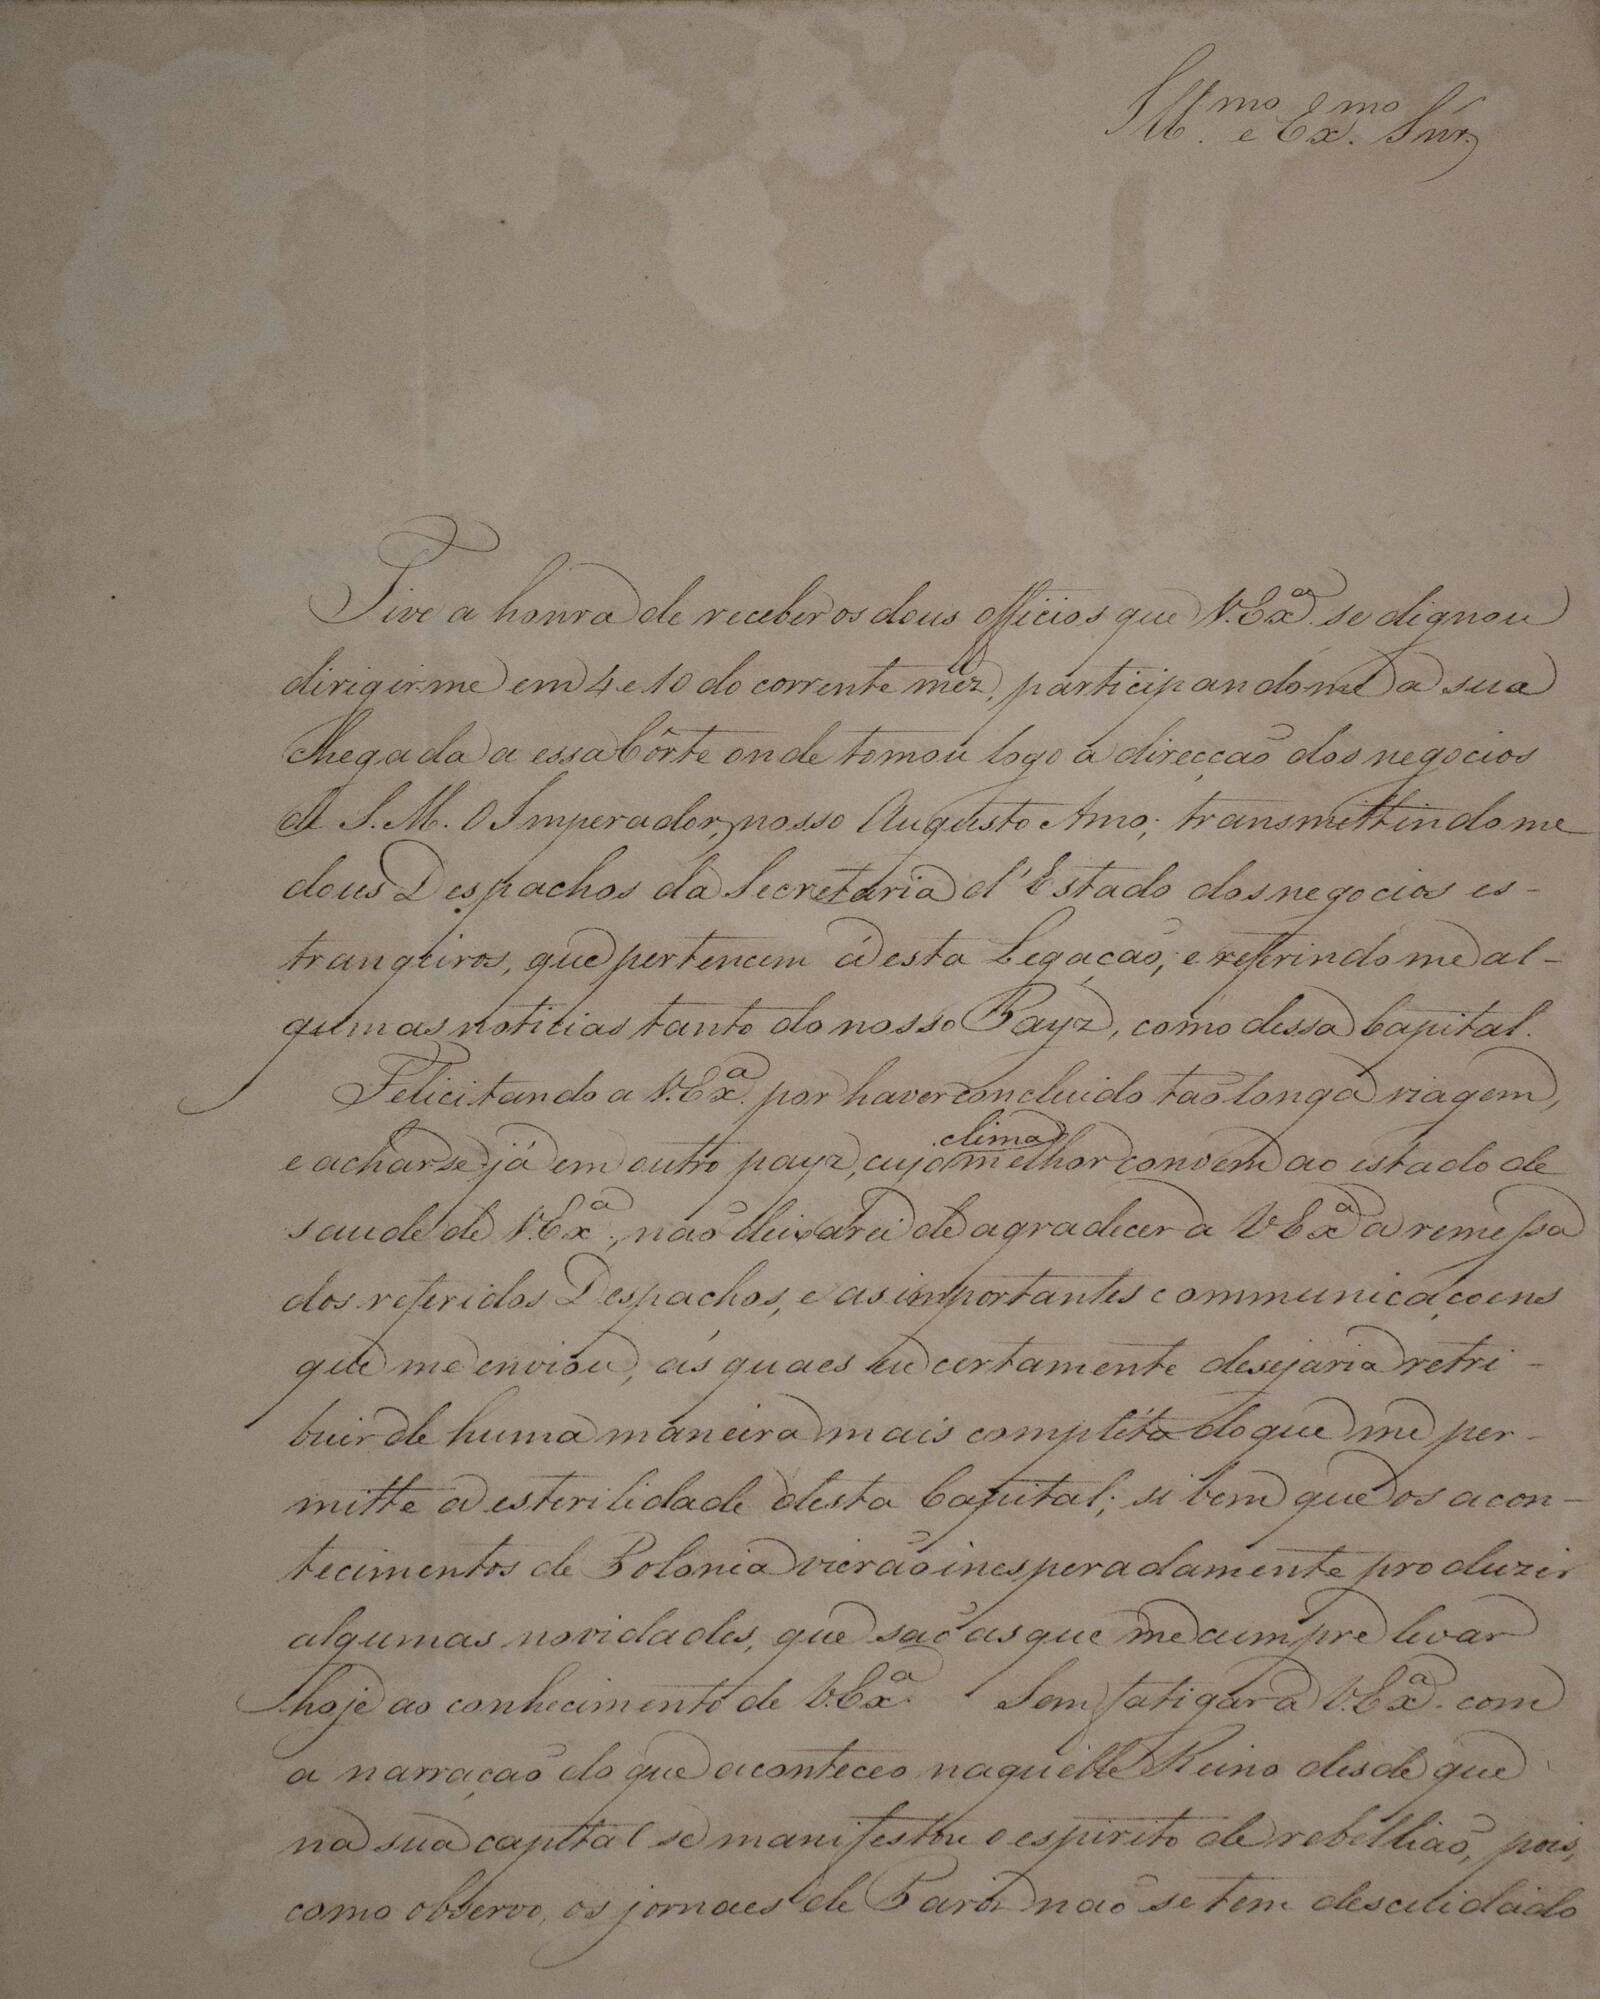 Ill.mo e Ex.mo Snr.
Tive a honra de receber os dous officios que V. Ex.a se dignou
dirigir me em 4 e 10 do corrente mêz, participando me a sua
Chegada a essa Côrte onde tomou logo a direcçaõ dos negocios
de S. M. O Imperador, nosso Augusto Amo; transmittindo me
dous Despachos da Secretaria d'Estado dos negocios es-
trangeiros, que pertencem á esta Legaçaõ; e referindo me al-
gumas noticias tanto do nosso Payz, como dessa Capital.
Felicitando a V. Ex.a por haver concluido taõ longa viagem,
e achar se já em outro payz, cujo clima melhor convem ao estado de
saude de V. Ex.a, naõ deixarei de agradecer a V Ex.a a remessa
dos referidos Despachos, e as importantes communicaçoens
que me enviou, ás quaes eu certamente desejaria retri-
buir de huma maneira mais compléta do que me per-
mitte a esterilidade desta Capital; si bem que os acon-
tecimentos de Polonia vieraõ inesperadamente produzir
algumas novidades, que saõ as que me cumpre levar
hoje ao conhecimento de V. Ex.a Sem fatigar a V. Ex.a com
a narraçaõ do que aconteceo naquelle Reino desde que
na sua capital se manifestou o espirito de rebelliaõ, pois,
como observo, os jornaes de Pariz naõ se tem descuidado